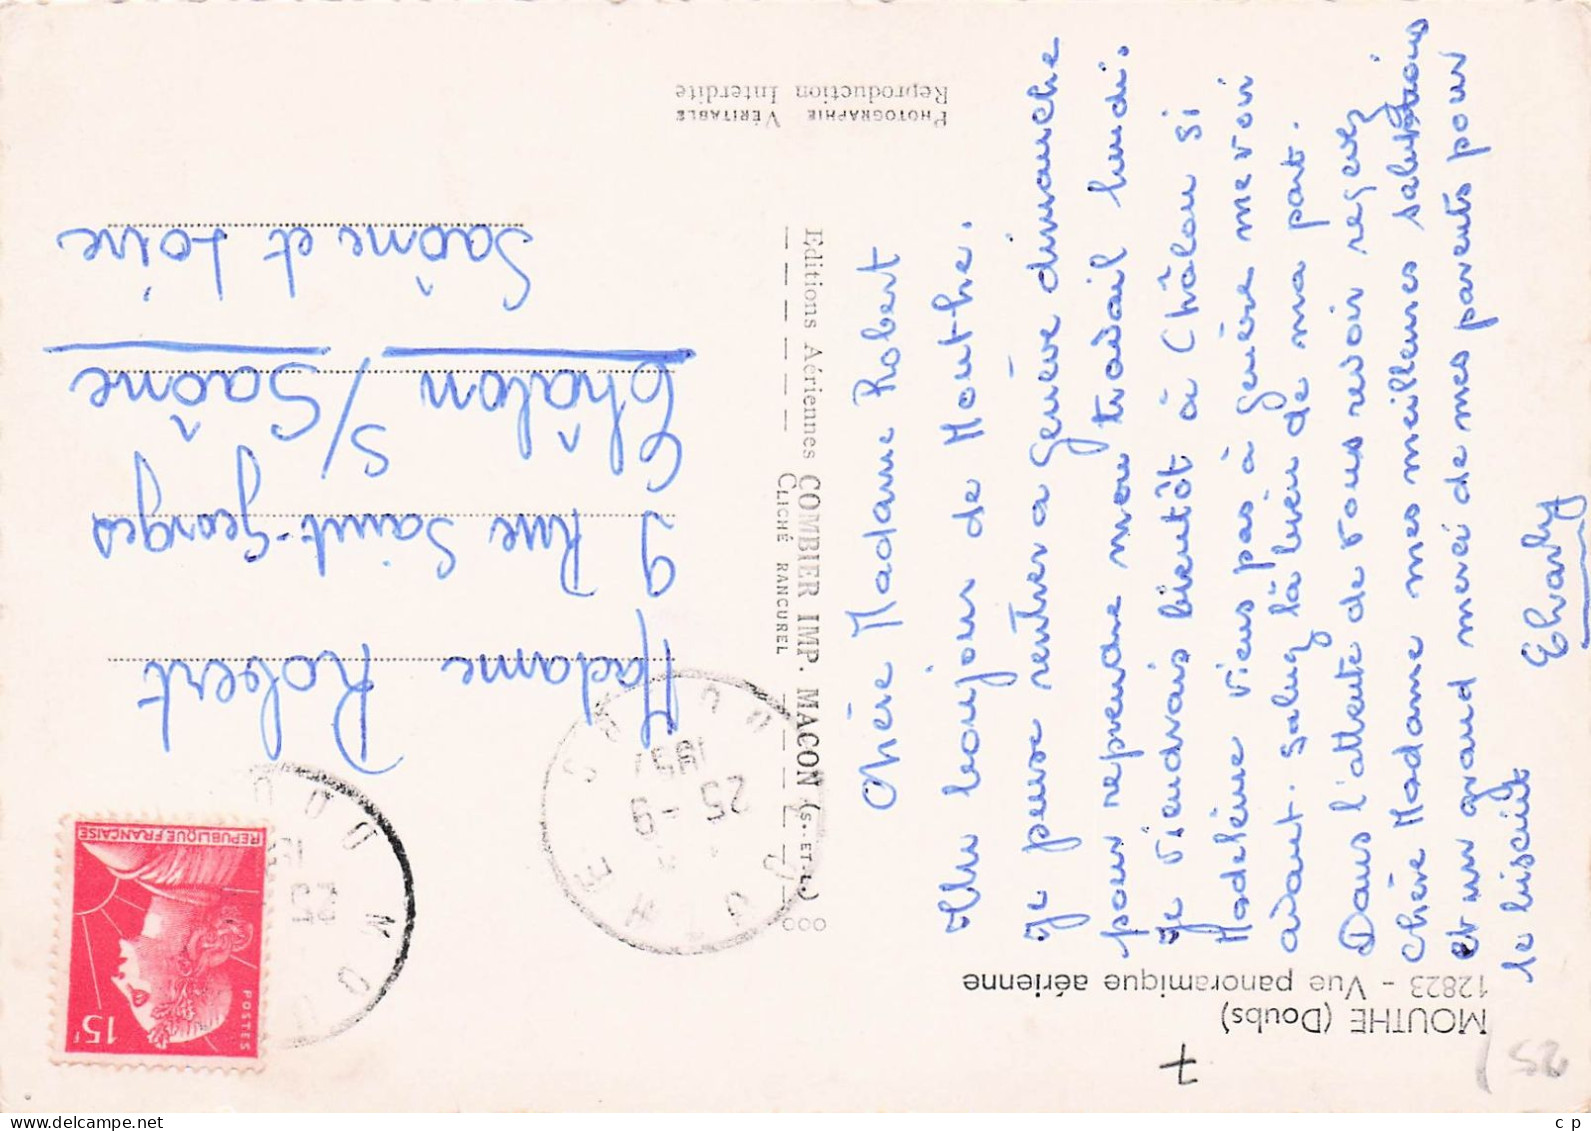 MOUTHE (Doubs)
12823 - Vue panoramique aérienne
Chère Madame Robert
Un boujour de Mouthe.
Je pense rentrer a genève dimanche
pour reprendre mon travail lundi.
Je viendrais bientôt à Châlon si
Madeleine viens pas à genève me voir
avant. Saluez là bien de ma part.
Dans l'attente de vous revoir regevez
chère Madame mes meilleures salutations
et un grand merci de mes parents pour
le biscuit Charly
PHOTOGRAPHIE VÉRITABLE
Reproduction Interdite
Editions Aériennes COMBIER IMP. MACON (S.-ET-L.)
CLICHÉ RANCUREL
15F
POSTES
REPUBLIQUE FRANÇAISE
MOUTHE
DOUBS
25 -9
1957
Madame Robert
9 Rue Saint-Georges
Châlon s/Saône
Saône et Loire
7
25
c p